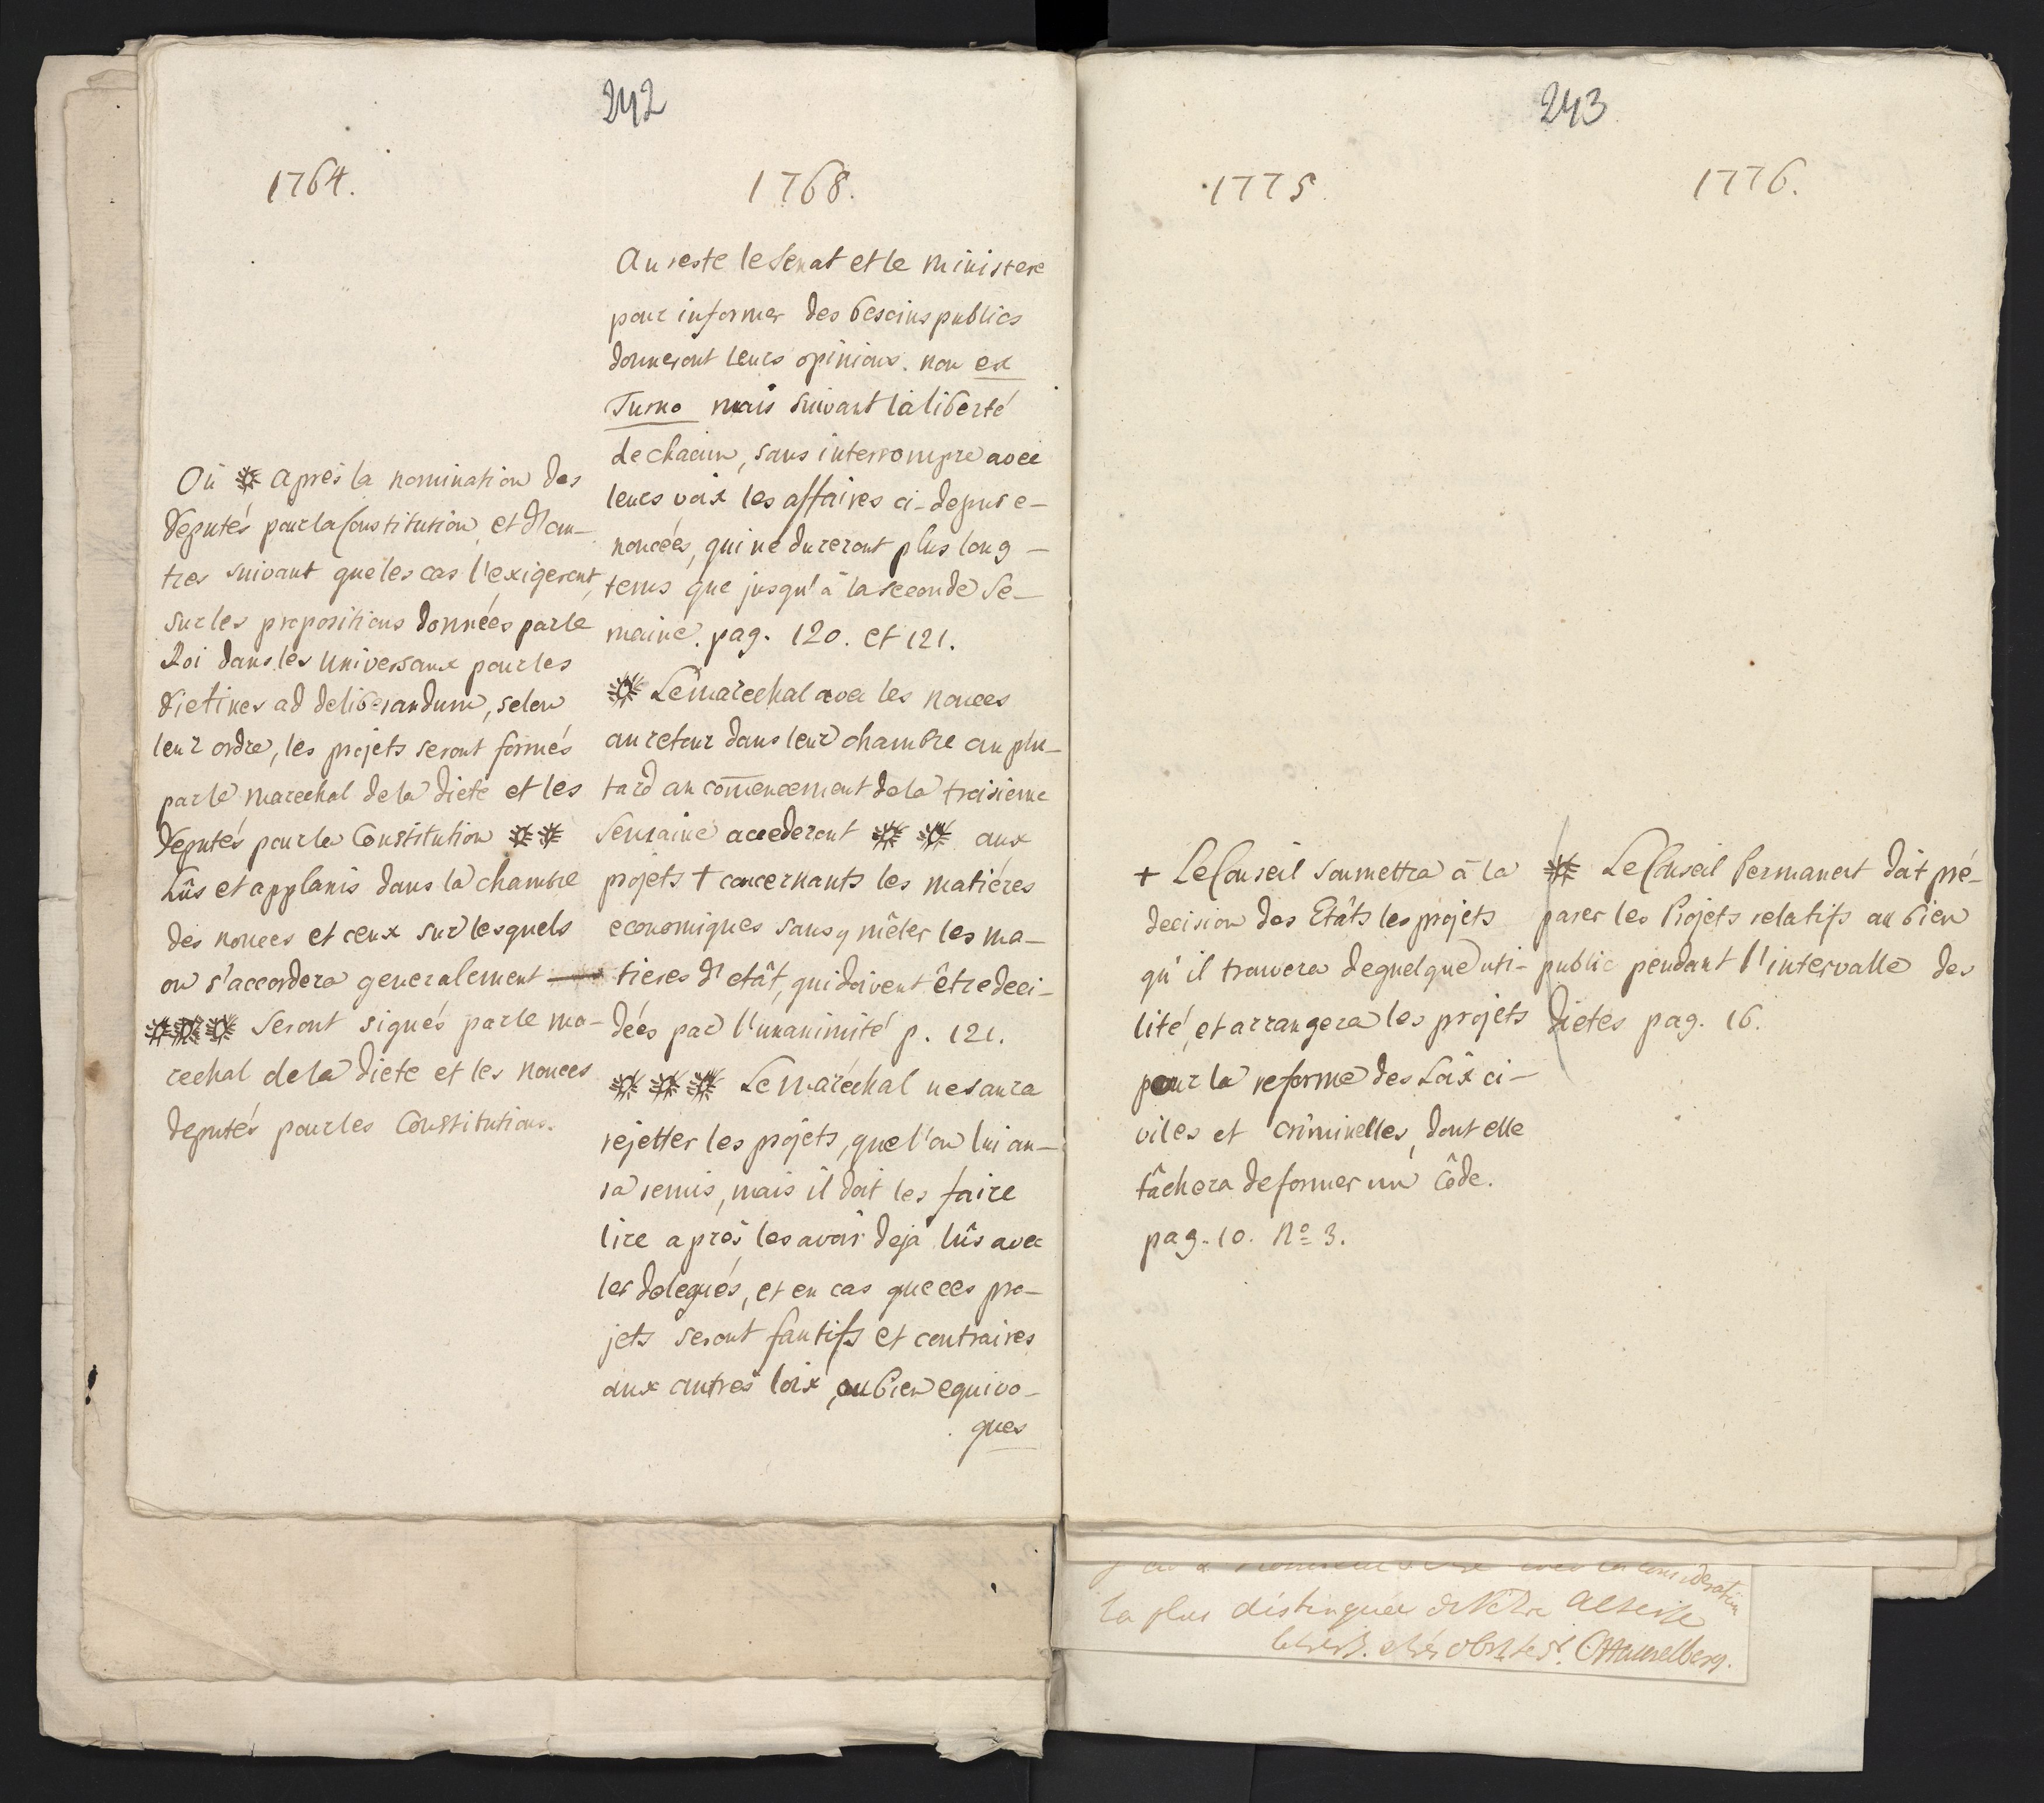 242
1764.
Où ※ après la nomination des
Deputés pour la Constitution, et d'au-
tres suivant que les cas l'exigeront,
sur les propositions données par le
Roi dans les Universaux pour les
Dietines ad deliberandum, selon
leur ordre, les projets seront formés
par le marechal de la diete et les
Deputés pour la Constitution ※ ※
Lûs et applanis dans la chambre
des nonces et ceux sur lesquels
on s'accordera generalement —
※※※ seront signés par le ma-
rechal de la diete et les nonces
deputés pour les Constitutions.
1768.
Au reste le Senat et le ministere
pour informer des besoins publics
donneront leurs opinions. non ex
Turno mais suivant la liberté
de chacun, sans interrompre avec
leurs voix les affaires ci-depus e-
noncées, qui ne dureront plus long-
tems que jusqu'à la seconde Se-
maine. pag. 120. et 121.
※ Le marechal avec les nonces
au retour dans leur chambre au plu-
tard au com̄encement de la troisieme
Semaine accederont ※ ※ aux
projets + concernants les matiéres
economiques sans y mêler les ma-
tieres d'etât, qui doivent être deci-
dées par l'unanimité p. 121.
※ ※ ※ Le maréchal ne saura
rejetter les projets, que l'on lui au-
ra remis, mais il doit les faire
lire après les avoir deja lûs avec
les delegués, et en cas que ces pro-
jets seront fautifs et contraires
aux autres loix, ou bien equivo-
ques
243
1775.
+ Le Conseil soumettra à la
decision des Etâts les projets
qu'il trouvera de quelque uti-
lité, et arrangera les projets
pour la reforme des Loix ci-
viles et criminelles, dont elle
tâchera de former un Côde.
pag. 10. No 3.
1776.
※ Le Conseil Permanent doit pré-
parer les Projets relatifs au bien
public pendant l'intervalle des
Dietes pag. 16.
la consideration
la plus distinguée de Votre Altesse